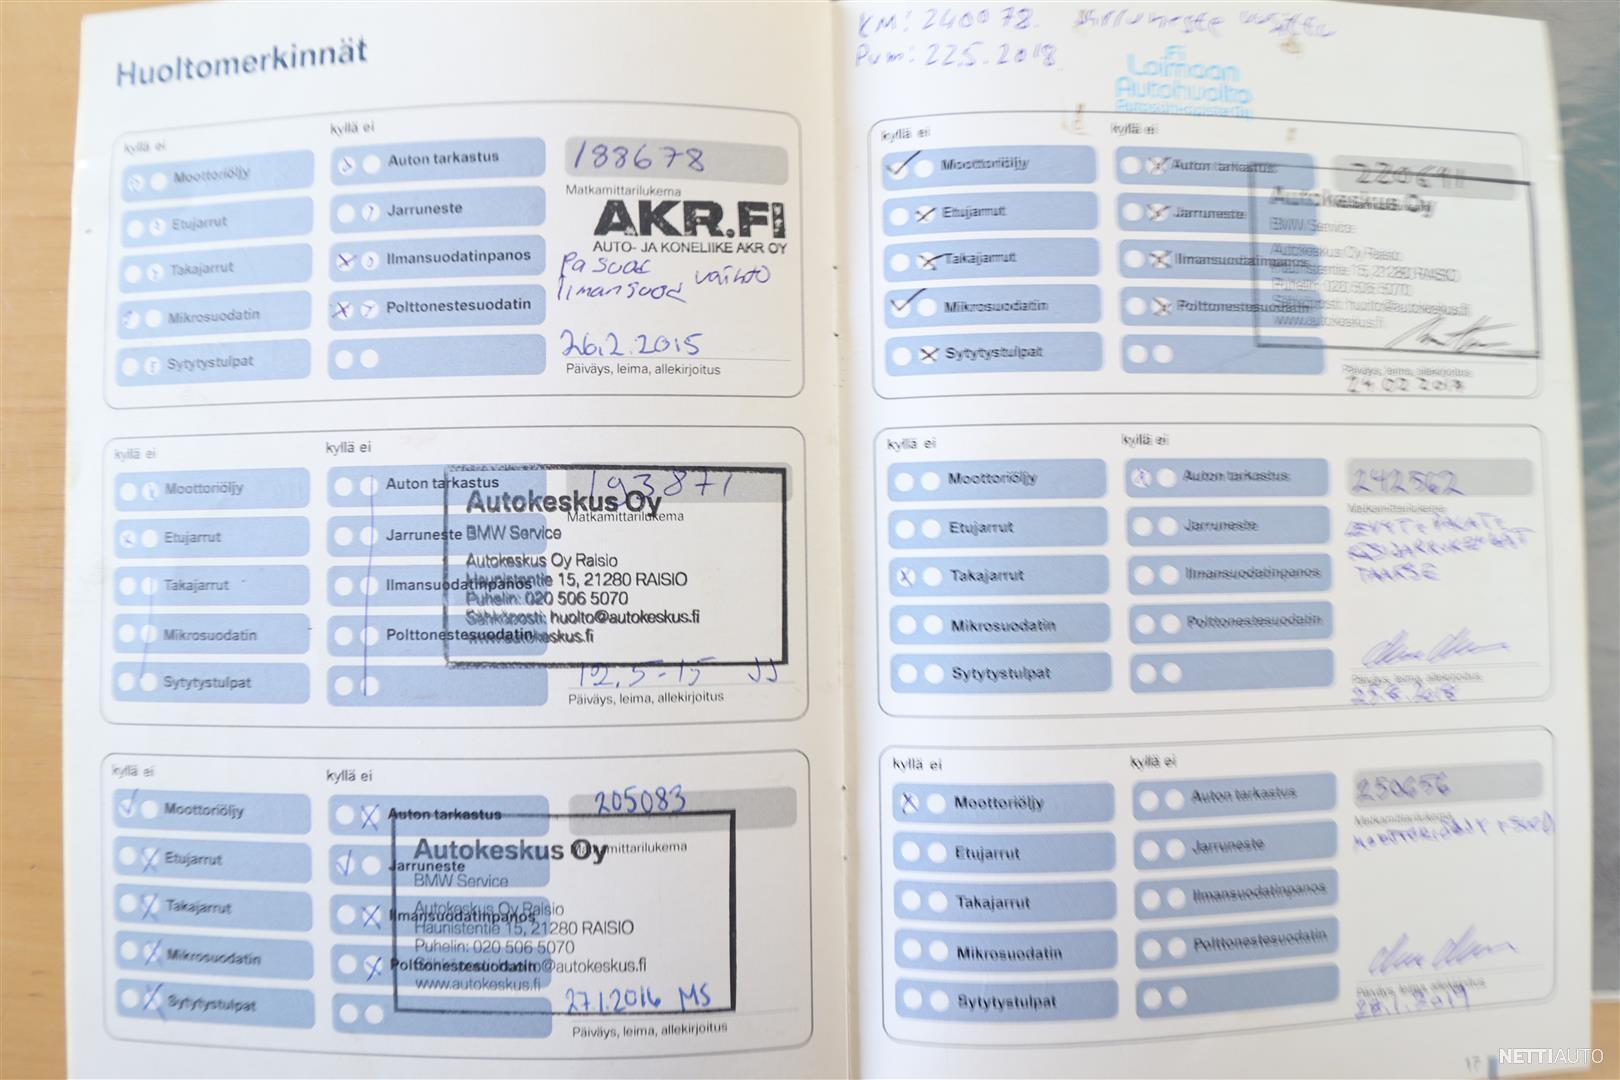 Huoltomerkinnät
kyllä ei
kyllä ei
Moottoriöljy
Auton tarkastus
188678
Matkamittarilukema
Etujarrut
Jarruneste
AKR.FI
AUTO- JA KONELIIKE AKR OY
Takajarrut
Ilmansuodatinpanos
vaihto
Mikrosuodatin
Polttonestesuodatin
Sytytystulpat
26.2.2015
Päiväys, leima, allekirjoitus
kyllä ei
kyllä ei
Moottoriöljy
Auton tarkastus
193871
Autokeskus Oy
Matkamittarilukema
Etujarrut
Jarruneste
BMW Service
Autokeskus Oy Raisio
Takajarrut
Ilmansuodatinpanos
Haunistentie 15, 21280 RAISIO
Puhelin: 020 506 5070
Sähköposti: huolto@autokeskus.fi
Mikrosuodatin
Polttonestesuodatin
www.autokeskus.fi
Sytytystulpat
12.5-15 JJ
Päiväys, leima, allekirjoitus
kyllä ei
kyllä ei
Moottoriöljy
Auton tarkastus
205083
Matkamittarilukema
Autokeskus Oy
Etujarrut
Jarruneste
BMW Service
Takajarrut
Ilmansuodatinpanos
Autokeskus Oy Raisio
Haunistentie 15, 21280 RAISIO
Puhelin: 020 506 5070
Mikrosuodatin
Polttonestesuodatin
@autokeskus.fi
www.autokeskus.fi
Sytytystulpat
27.1.2016 MS
Päiväys, leima, allekirjoitus
KM: 240078. Jarruneste
Pvm: 22.5.2018
.Fi
Loimaan
Autohuolto
kyllä ei
kyllä ei
Moottoriöljy
Auton tarkastus
Autokeskus Oy
Etujarrut
Jarruneste
BMW Service
Autokeskus Oy Raisio
Takajarrut
Ilmansuodatinpanos
Haunistentie 15, 21280 RAISIO
Puhelin: 020 506 5070
Mikrosuodatin
Polttonestesuodatin
Sähköposti: huolto@autokeskus.fi
www.autokeskus.fi
Sytytystulpat
Päiväys, leima, allekirjoitus
kyllä ei
kyllä ei
Moottoriöljy
Auton tarkastus
242562
Matkamittarilukema
Etujarrut
Jarruneste
Takajarrut
Ilmansuodatinpanos
TAAKSE
Mikrosuodatin
Polttonestesuodatin
Sytytystulpat
Päiväys, leima, allekirjoitus
kyllä ei
kyllä ei
Moottoriöljy
Auton tarkastus
250656
Matkamittarilukema
Etujarrut
Jarruneste
Takajarrut
Ilmansuodatinpanos
Mikrosuodatin
Polttonestesuodatin
Sytytystulpat
Päiväys, leima, allekirjoitus
17
NETTIAUTO